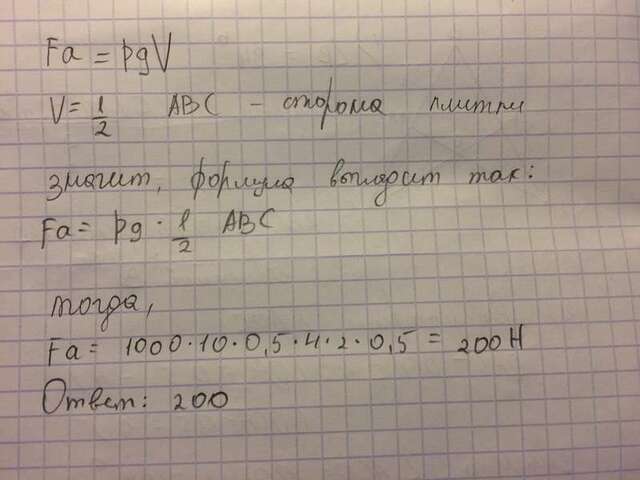 Fa = pgV
V = 1/2 ABC - сторона плитки
значит, формула выглядит так:
Fa = pg · 1/2 ABC
тогда,
Fa = 1000·10·0,5·4·2·0,5 = 200 Н
Ответ: 200